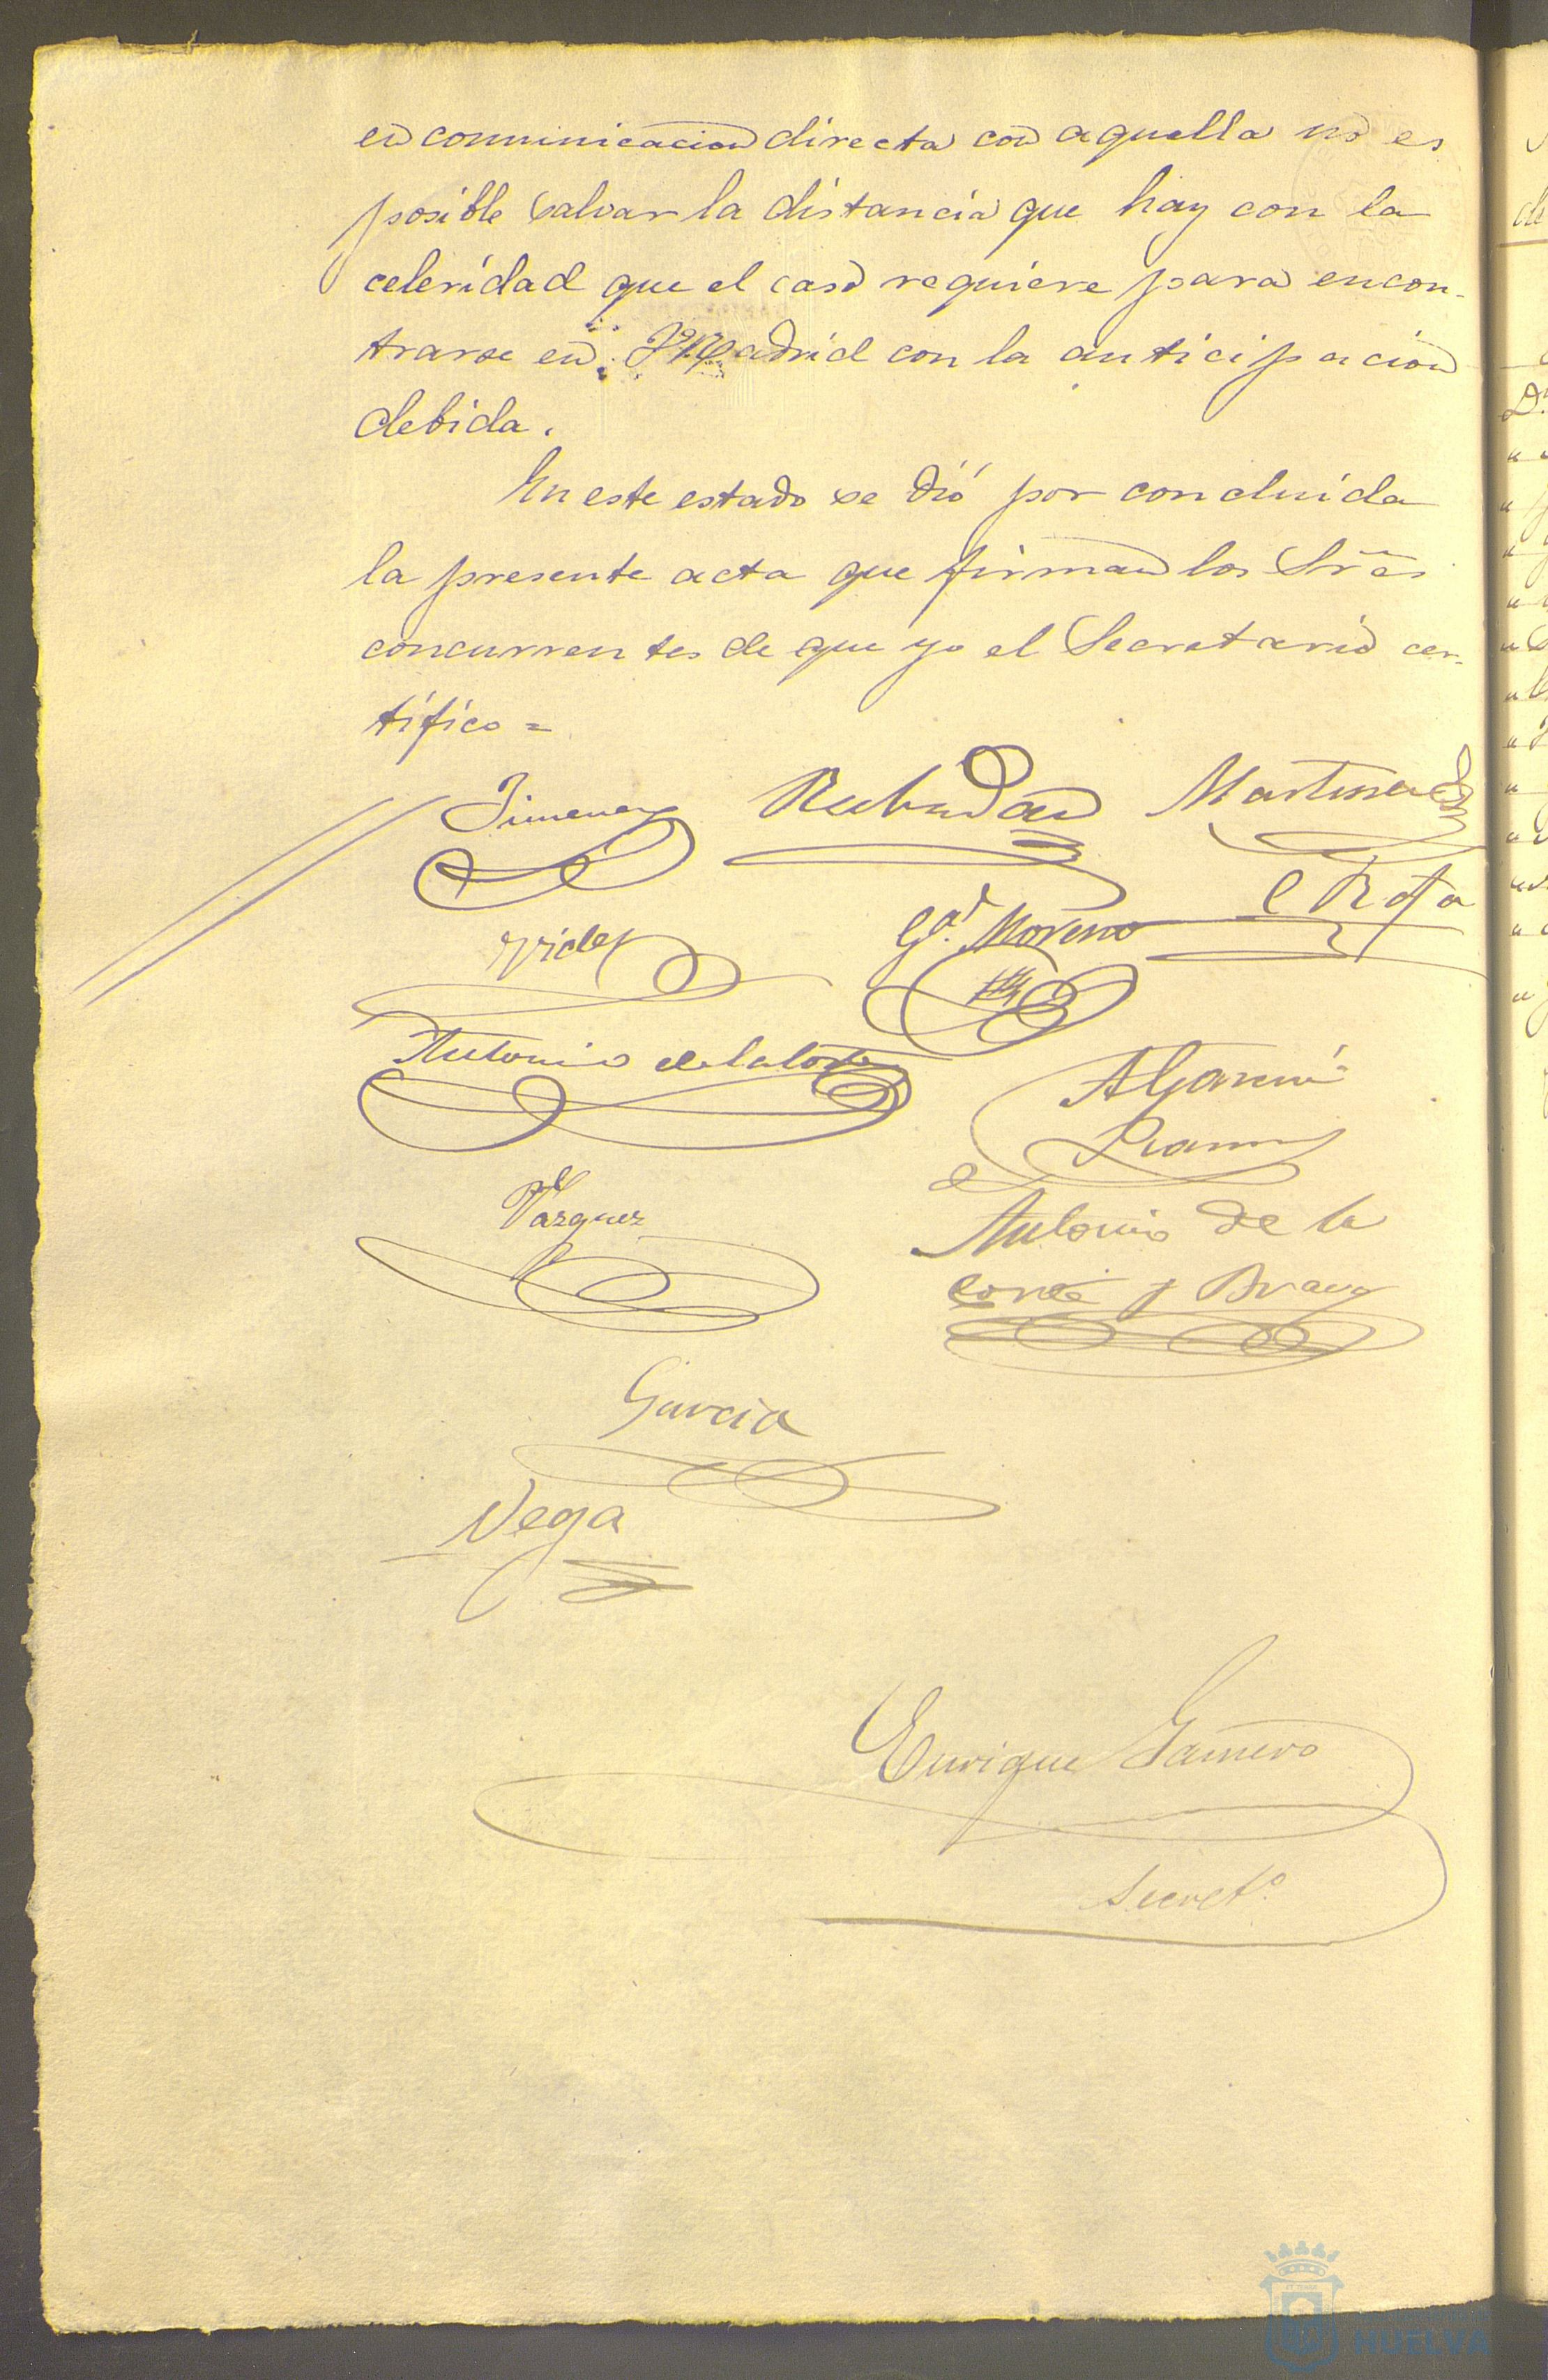 en comunicacion directa con aquella no es
posible salvar la distancia que hay con la
celeridad que el caso requiere para encon-
trarse en Madrid con la anticipacion
debida.
En este estado se dió por concluida
la presente acta que firman los Sres
concurrentes de que yo el Secretario cer-
tifico =
Jimenez
Martinez
Gª Moreno
Antonio de la Corte
A Garcia
Ramos
Vazquez
Antonio de la
Corte y Bravo
Garcia
Vega
Enrique Gamero
Secretº
HUELVA